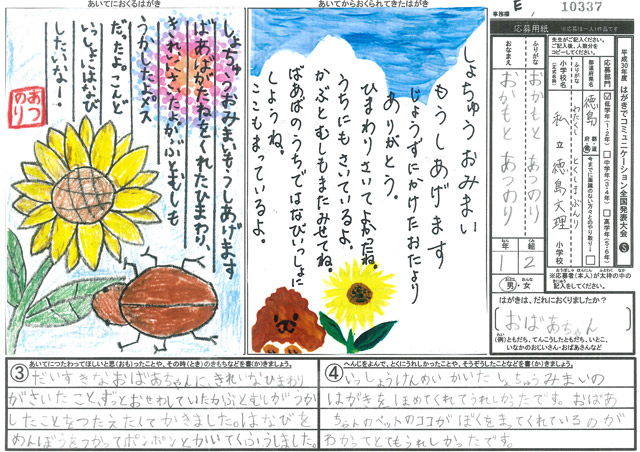 あいてにおくるはがき
しょちゅうおみまいもうしあげます
ばあばがたねをくれたひまわり、
きれいにさいたよ。かぶとむしも
うかしたよ。オス
だったよ。こんど
いっしょにはなび
したいなー！
あつのり
あいてからおくられてきたはがき
しょちゅうおみまい
もうしあげます
じょうずにかけたおたより
ありがとう。
ひまわりさいてよかったね。
うちにもさいているよ。
かぶとむしもまたみせてね。
ばあばのうちではなびいっしょに
しようね。
ここもまっているよ。
事務局 E 10337
平成30年度 はがきでコミュニケーション全国発表大会 S
応募用紙 ※応募は一人1作品です
先生がご記入ください。
ご記入後、人数分を
コピーしてください。
応募部門
☑低学年(1・2年) □中学年(3・4年) □高学年(5・6年)
都道府県名
徳島 都道府県
ふりがな
小学校名
(正式名称)
わたくしりつ とくしまぶんり
私立徳島文理小学校
ふりがな
おなまえ
おかもと あつのり
おかもと あつのり
1年
2組
男・女
※応募者(本人)が太枠の中の
記入をしてください。
はがきは、だれにおくりましたか？
おばあちゃん
(例)ともだち、てんこうしたともだち、いとこ、
いなかのおじいさん・おばあさんなど
③ あいてにつたわってほしいと思(おも)ったことや、その時(とき)のきもちなどを書(か)きましょう。
だいすきなおばあちゃんに、きれいなひまわり
がさいたこと、ずっとおせわしていたかぶとむしがうか
したことをつたえたしてかきました。はなびを
めんぼうをつかってポンポンとかいてくふうしました。
④ へんじをよんで、とくにうれしかったことや、そうぞうしたことなどを書(か)きましょう。
いっしょうけんめいかいたしょちゅうみまいの
はがきをほめてくれてうれしかったです。おばあ
ちゃんのペットのココがぼくをまってくれているのが
わかってとてもうれしかったです。